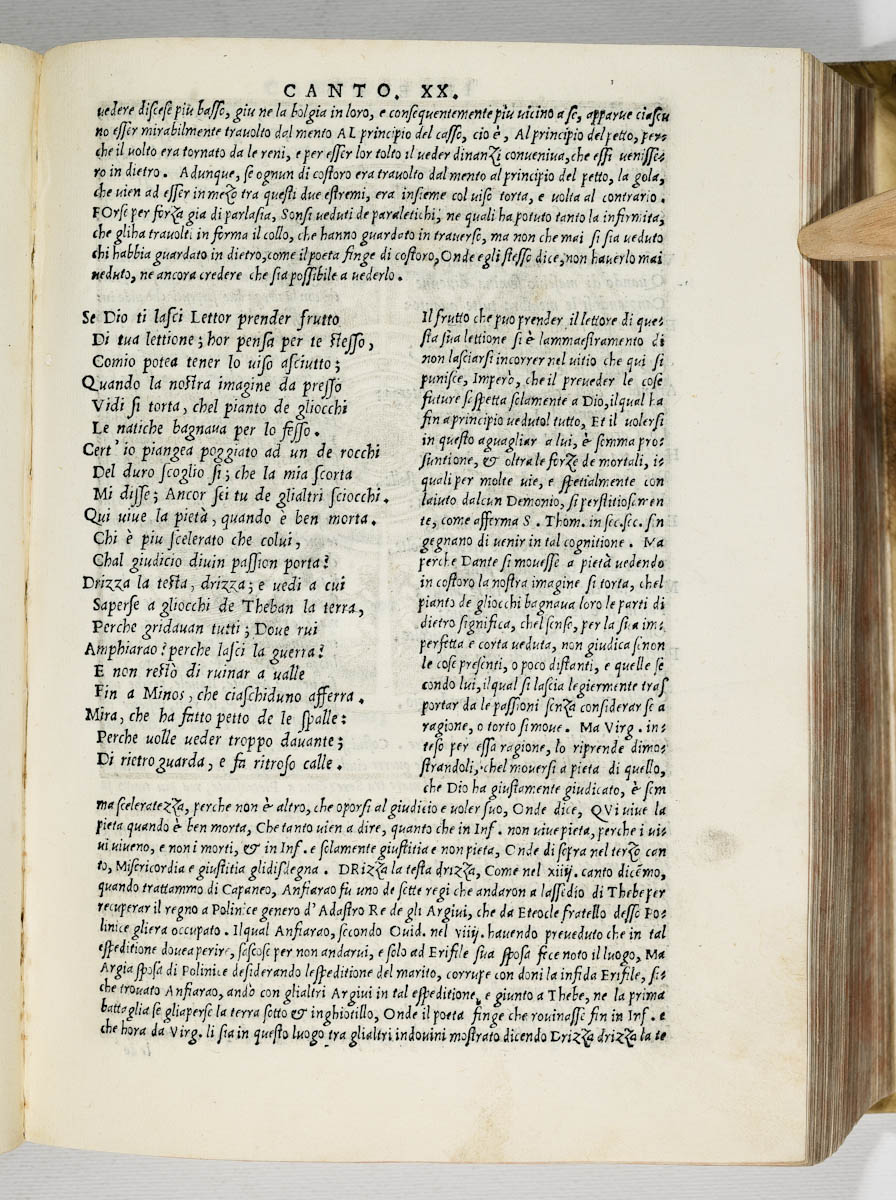 CANTO. XX.
vedere discese piu basso, giu ne la bolgia in loro, e consequentemente piu vicino a se, apparve ciascu
no esser mirabilmente travolto dal mento AL principio del casso, cio è, Al principio del petto, per-
che il volto era tornato da le reni, e per esser lor tolto il veder dinanzi conveniva, che essi venisse-
ro in dietro. Adunque, se ognun di costoro era travolto dal mento al principio del petto, la gola,
che vien ad esser in mezo tra questi due estremi, era insieme col viso torta, e volta al contrario.
FOrse per forza gia di parlasia, Sonsi veduti de paraletichi, ne quali ha potuto tanto la infirmita,
che gliha travolti in forma il collo, che hanno guardato in traverso, ma non che mai si sia veduto
chi habbia guardato in dietro, come il poeta finge di costoro, Onde egli stesso dice, non haverlo mai
veduto, ne ancora credere che sia possibile a vederlo.
Se Dio ti lasci Lettor prender frutto
Di tua lettione; hor pensa per te stesso,
Comio potea tener lo uiso asciutto;
Quando la nostra imagine da presso
Vidi si torta, chel pianto de gliocchi
Le natiche bagnaua per lo fesso.
Cert'io piangea poggiato ad un de rocchi
Del duro scoglio si; che la mia scorta
Mi disse; Ancor sei tu de glialtri sciocchi.
Qui uiue la pietà, quando è ben morta.
Chi è piu scelerato che colui,
Chal giudicio diuin passion porta?
Drizza la testa, drizza; e uedi a cui
Saperse a gliocchi de Theban la terra,
Perche gridauan tutti; Doue rui
Amphiarao? perche lasci la guerra?
E non restò di ruinar a ualle
Fin a Minos, che ciaschiduno afferra.
Mira, che ha fatto petto de le spalle:
Perche uolle ueder troppo dauante;
Di rietro guarda, e fa ritroso calle.
Il frutto che puo prender il lettore di que-
sta sua lettione si è lammaestramento di
non lasciarsi incorrer nel uitio che qui si
punisce, Imperò, che il preveder le cose
future sespetta solamente a Dio, ilqual ha
fin a principio vedutol tutto, Et il volersi
in questo aguagliar a lui, è somma pro-
suntione, & oltra le forze de mortali, i-
quali per molte vie, e spetialmente con
laiuto dalcun Demonio, si perstitiosamen
te, come afferma S. Thom. in sec. sec. sin
gegnano di venir in tal cognitione. Ma
perche Dante si movesse a pietà vedendo
in costoro la nostra imagine si torta, chel
pianto de gliocchi bagnava loro le parti di
dietro significa, chel senso, per la sua im-
perfetta e corta veduta, non giudica sinon
le cose presenti, o poco distanti, e quelle se
condo lui, ilqual si lascia legiermente tras
portar da le passioni senza considerar se a
ragione, o torto si move. Ma Virg. in-
teso per essa ragione, lo riprende dimo-
strandoli, chel moversi a pieta di quello,
che Dio ha giustamente giudicato, è som
ma sceleratezza, perche non è altro, che oporsi al giudicio e voler suo, Onde dice, QVi vive la
pieta quando è ben morta, Che tanto vien a dire, quanto che in Inf. non vive pieta, perche i vi-
vi viveno, e non i morti, & in Inf. e solamente giustitia e non pieta, Onde di sopra nel terzo can
to, Misericordia e giustitia glidisdegna. DRizza la testa drizza, Come nel xiiij. canto dicemo,
quando trattammo di Capaneo, Anfiarao fu uno de sette regi che andaron a lassedio di Thebe per
recuperar il regno a Polinice genero d'Adastro Re de gli Argivi, che da Eteocle fratello desso Po-
linice gliera occupato. Ilqual Anfiarao, secondo Ovid. nel viiij. havendo preveduto che in tal
espeditione dovea perire, sascose per non andarvi, e solo ad Erifile sua sposa fece noto il luogo, Ma
Argia sposa di Polinice desiderando lespeditione del marito, corrupe con doni la infida Erifile, si-
che trovato Anfiarao, andò con glialtri Argivi in tal espeditione, e giunto a Thebe, ne la prima
battaglia se gliaperse la terra sotto & inghiotillo, Onde il poeta finge che rovinasse fin in Inf. e
che hora da Virg. li sia in questo luogo tra glialtri indovini mostrato dicendo Drizza drizza la te